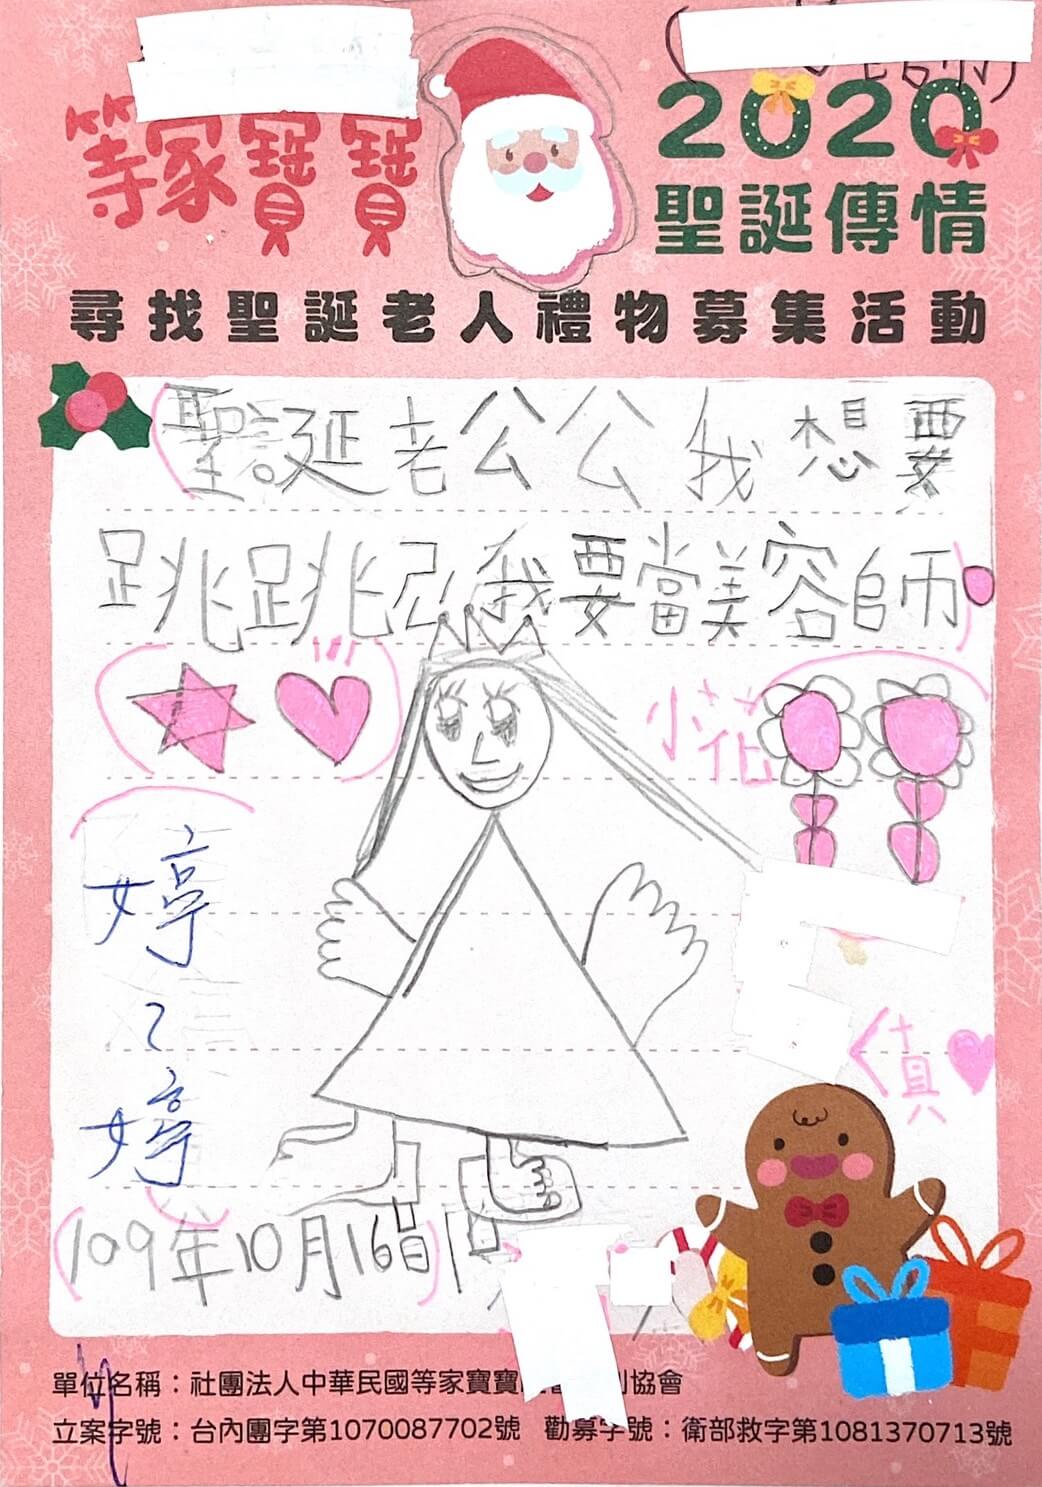 等家寶寶
2020
聖誕傳情
尋找聖誕老人禮物募集活動
聖誕老公公我想要
跳跳 我要當美容師
小花
婷
婷
真
109年10月16日
單位名稱：社團法人中華民國等家寶寶 協會
立案字號：台內團字第1070087702號 勸募字號：衛部救字第1081370713號